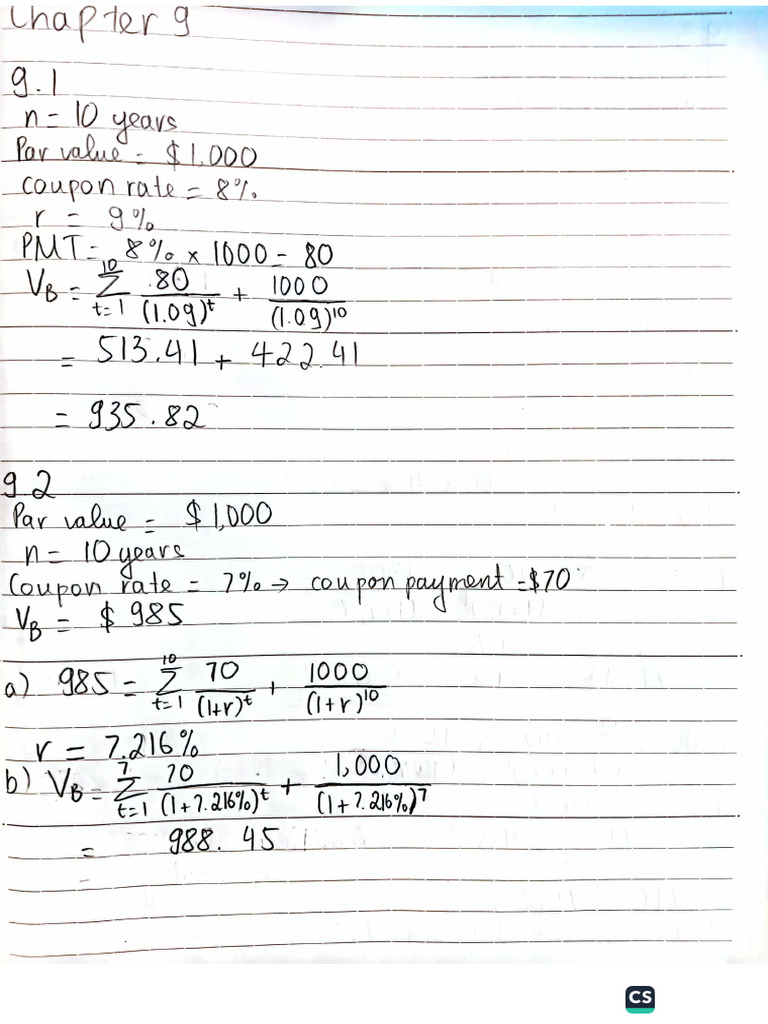 Chapter 9
9.1
n = 10 years
Par value = $1,000
coupon rate = 8%
r = 9%
PMT = 8% × 1000 = 80
V_B = Σ_{t=1}^{10} 80/(1.09)^t + 1000/(1.09)^10
= 513.41 + 422.41
= 935.82
9.2
Par value = $1,000
n = 10 years
Coupon rate = 7% → coupon payment = $70
V_B = $985
a) 985 = Σ_{t=1}^{10} 70/(1+r)^t + 1000/(1+r)^10
r = 7.216%
b) V_B = Σ_{t=1}^{7} 70/(1+7.216%)^t + 1,000/(1+7.216%)^7
= 988.45
=
CS